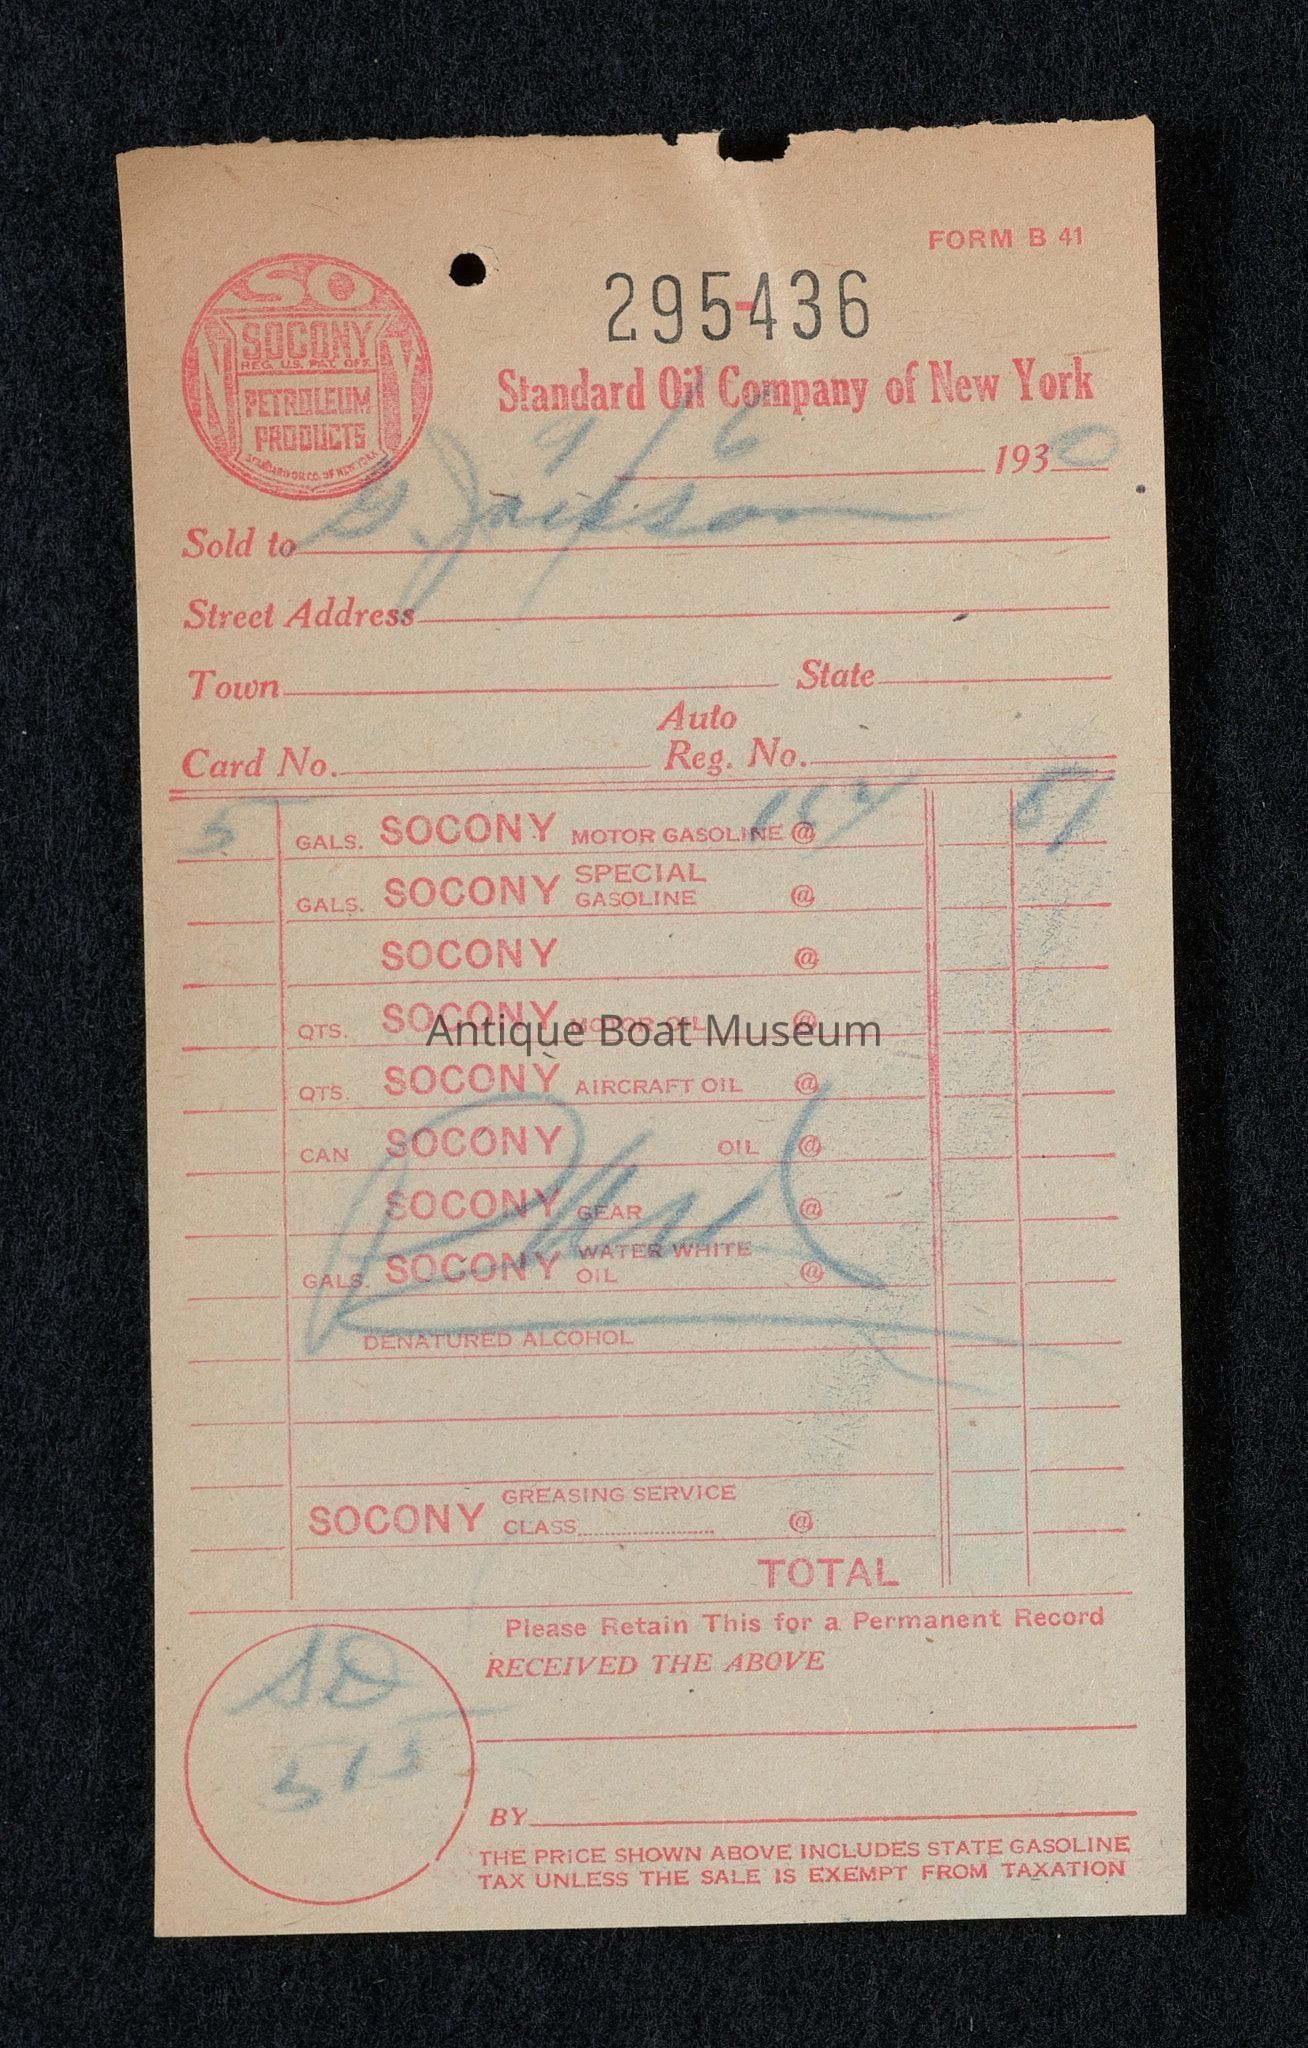 FORM B 41
295436
SO
SOCONY
REG. U.S. PAT. OFF.
PETROLEUM
PRODUCTS
STANDARD OIL CO. OF NEW YORK
Standard Oil Company of New York
9/6 1930
Sold to G. Jackson
Street Address
Town State
Auto
Card No. Reg. No.
5 GALS. SOCONY MOTOR GASOLINE @
GALS. SOCONY SPECIAL GASOLINE @
SOCONY @
QTS. SOCONY MOTOR OIL @
Antique Boat Museum
QTS. SOCONY AIRCRAFT OIL @
CAN SOCONY OIL @
SOCONY GEAR @
GALS. SOCONY WATER WHITE OIL @
Paid
DENATURED ALCOHOL
SOCONY GREASING SERVICE
CLASS @
TOTAL
Please Retain This for a Permanent Record
RECEIVED THE ABOVE
SD
515
BY
THE PRICE SHOWN ABOVE INCLUDES STATE GASOLINE
TAX UNLESS THE SALE IS EXEMPT FROM TAXATION